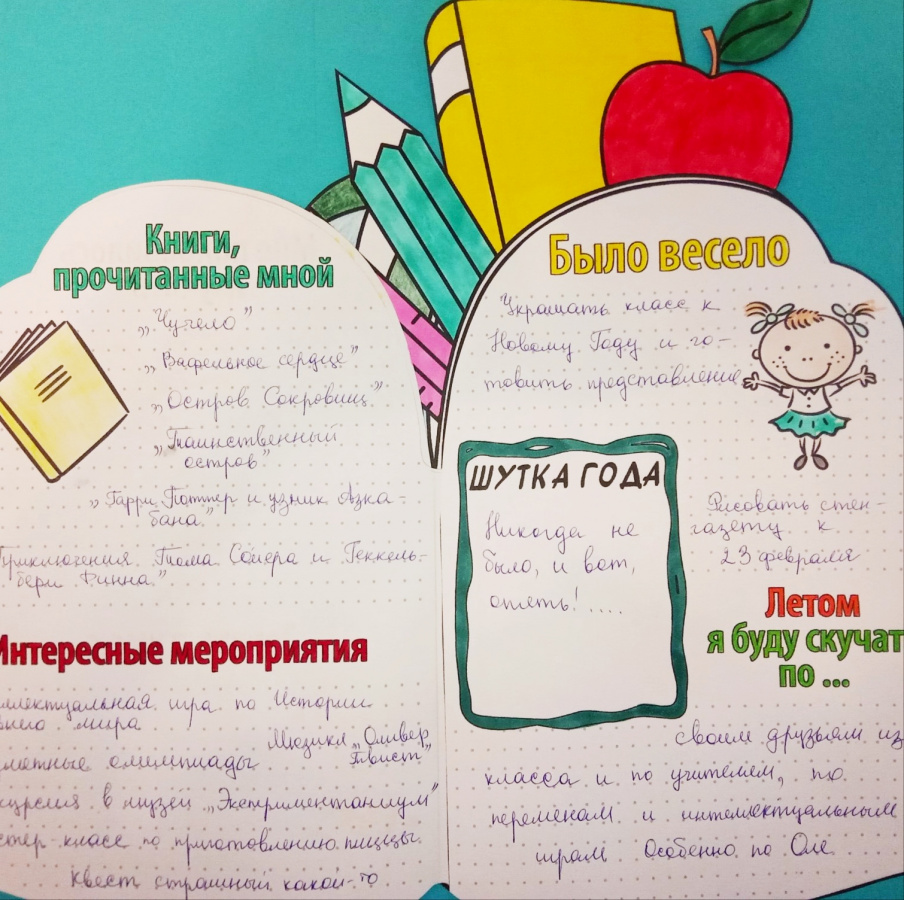 Книги,
прочитанные мной
„Чучело”
„Вафельное сердце”
„Остров Сокровищ”
„Таинственный
остров”
„Гарри Поттер и узник Азка-
бана”
Приключения Тома Сойера и Геккель-
бери Финна”
Интересные мероприятия
игра по Истории
мира
Мюзикл „Оливер
Твист”
олимпиады
в музей „Экспериментаниум”
класс по приготовлению пиццы
Квест страшный какой-то
Было весело
Украшать класс к
Новому Году и го-
товить представление
Рисовать стен-
газету к
23 февраля
ШУТКА ГОДА
Никогда не
было, и вот,
опять!.....
Летом
я буду скучат
по ...
своим друзьям из
класса и по учителям, по
переменам и интеллектуальным
играм Особенно по Оле